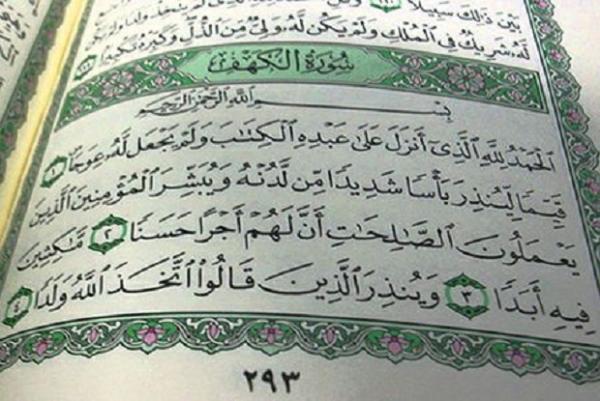 بَيْنَ ذَٰلِكَ سَبِيلًا ١١٠ وَقُلِ
لَّهُۥ شَرِيكٌ فِى ٱلْمُلْكِ وَلَمْ يَكُن لَّهُۥ وَلِىٌّ مِّنَ ٱلذُّلِّ وَكَبِّرْهُ تَكْبِيرًا ١١١
سُورَةُ الكَهْفِ
بِسْمِ ٱللَّهِ ٱلرَّحْمَٰنِ ٱلرَّحِيمِ
ٱلْحَمْدُ لِلَّهِ ٱلَّذِىٓ أَنزَلَ عَلَىٰ عَبْدِهِ ٱلْكِتَٰبَ وَلَمْ يَجْعَل لَّهُۥ عِوَجَا ۜ ١
قَيِّمًا لِّيُنذِرَ بَأْسًا شَدِيدًا مِّن لَّدُنْهُ وَيُبَشِّرَ ٱلْمُؤْمِنِينَ ٱلَّذِينَ
يَعْمَلُونَ ٱلصَّٰلِحَٰتِ أَنَّ لَهُمْ أَجْرًا حَسَنًا ٢ مَّٰكِثِينَ
فِيهِ أَبَدًا ٣ وَيُنذِرَ ٱلَّذِينَ قَالُوا۟ ٱتَّخَذَ ٱللَّهُ وَلَدًا ٤
٢٩٣